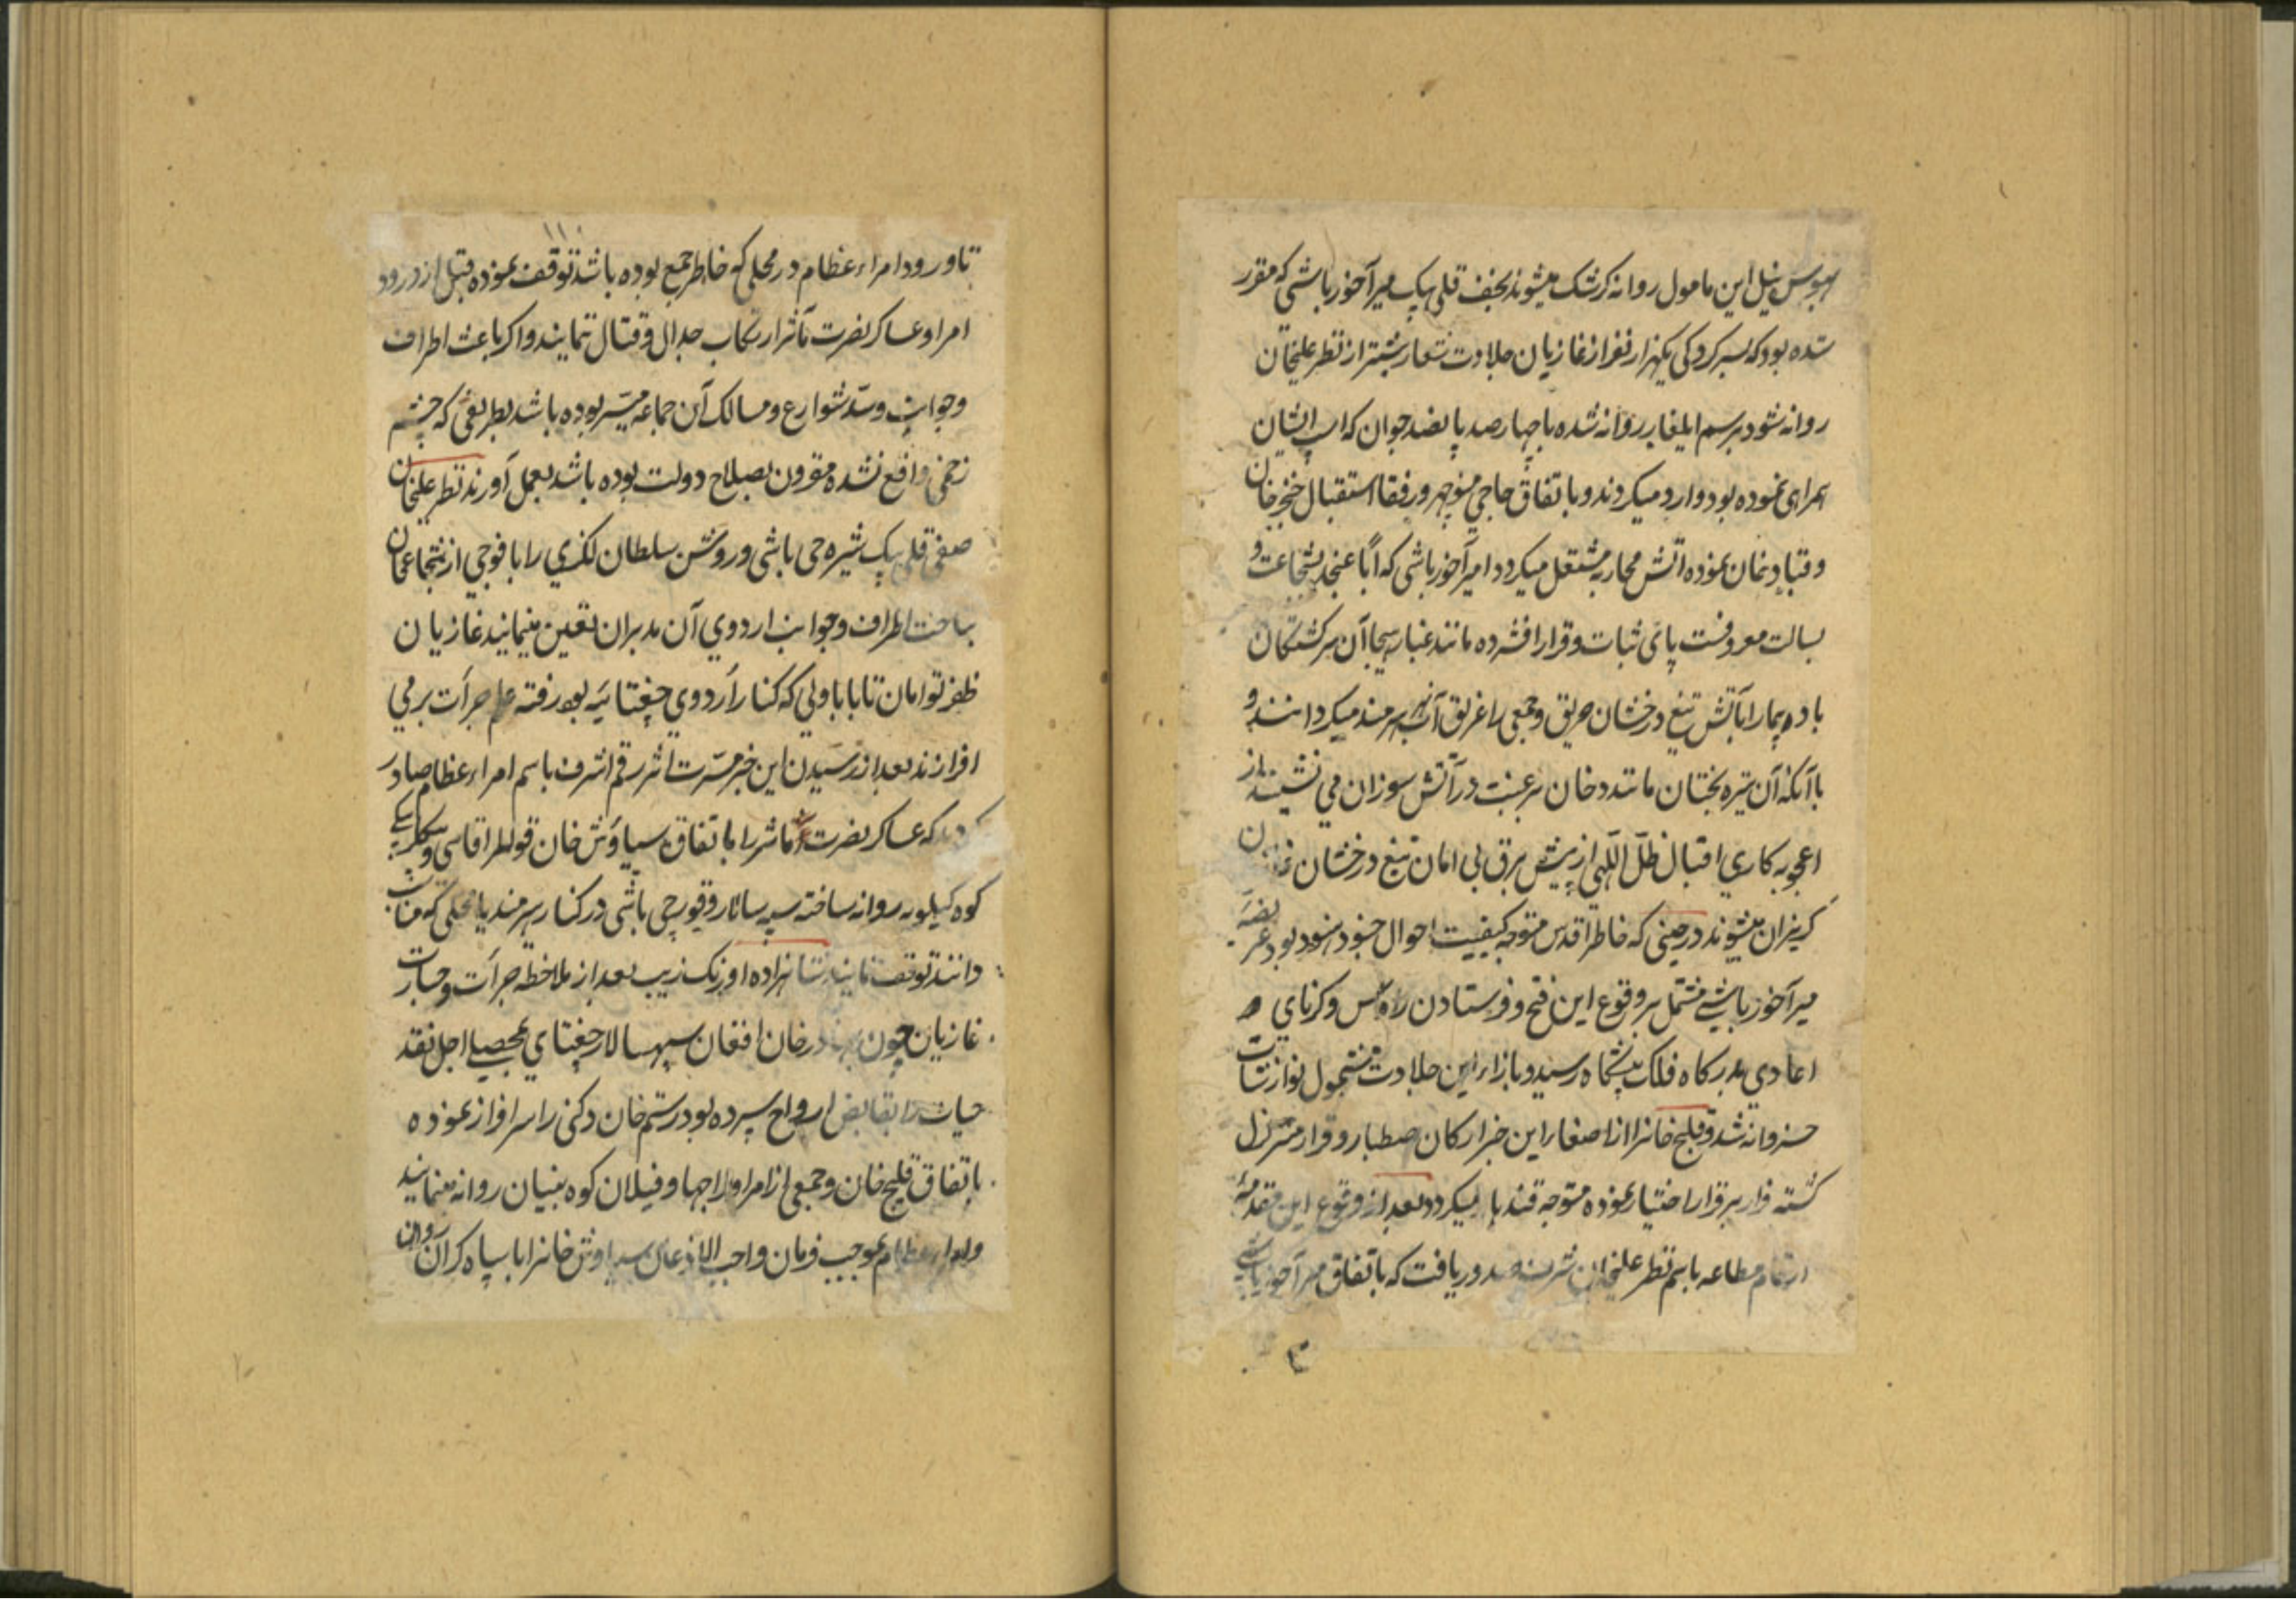 بهوس نیل این مامول روانه کرشک میشوند نجف قلی بیک میرآخور باشی که مقرر
شده بود که بسرکردکی یکهزار نفر از غازیان جلادت شعار بیشتر از نظر علیخان
روانه شود برسم ایلغار روانه شده با چهارصد پانصد جوان که اسب ایشان
همراهی نموده بود وارد میکردند و باتفاق حاجی منوچهر و رفقا استقبال خنجر خان
و قباد خان نموده اتش محاربه مشتعل میکردد امیرآخور باشی که اباعنجد بشجاعت و
بسالت معروفست پای ثبات و قرار افشرده مانند غبار هیجا آن سرکشتکان
باده پیما را بآتش تیغ درخشان حریق و جمعی را غریق آب هیرمند میکردانند و
با آنکه آن تیره بختان مانند دخان برغبت در آتش سوزان می نشینند از
اعجوبه کاری اقبال ظل آلهی از پیش برق بی امان تیغ درخشان
کریزان میشوند در حینی که خاطر اقدس متوجه کیفیت احوال جنود مسعود بود عریضه
میرآخور باشی مشتمل بر وقوع این فتح و فرستادن رؤس و کرنای
اعادی بدرکاه فلک پیشکاه رسید و بازاء این جلادت مشمول نوازشات
خسروانه شد و قلیج خانرا از اصغار این خبر ارکان صطبار و قرار متزلزل
کشته فرار بر قرار اختیار نموده متوجه قندهار میکردد بعد از وقوع این مقدمه
ارقام مطاعه باسم نظر علیخان شرف صدور یافت که باتفاق میرآخور باشی
تا ورود امراء عظام در محلی که خاطر جمع بوده باشد توقف نموده قبل از ورود
امرا و عساکر نصرت مآثر ارتکاب جدال و قتال ننمایند و اکر باعث اطراف
و جوانب و سد شوارع و مسالک آن جماعه میسر بوده باشد بطریقی که چشم
زخمی واقع نشده مقرون بصلاح دولت بوده باشد بعمل آورند نظر علیخان
صفی قلی بیک شیره چی باشی و روشن سلطان لکزی را با فوجی از شجاعان
بتاخت اطراف و جوانب اردوی آن مدبران تعین مینمایند غازیان
ظفر توامان تا بابا ولی که کنار اردوی جغتائیه بود رفته علم جرات بر می
افرازند بعد از رسیدن این خبر مسرت اثر رقم اشرف باسم امراء عظام صادر
کردید که عساکر نصرت مآثر را باتفاق سیاوش خان قوللر اقاسی و بیکلربیکی
کوه کیلویه روانه ساخته سپه سالار و قورچی باشی در کنار هیرمند یا محلی که مناسب
دانند توقف نمایند شاهزاده اورنک زیب بعد از ملاحظه جرات و جسارت
غازیان چون بهادر خان افغان سپهسالار جغتای بمحصلی اجل نقد
حیات را بقابض ارواح سپرده بود رستم خان دکنی را سرافراز نموده
باتفاق قلیج خان و جمعی از امرا و راجها و فیلان کوه بنیان روانه مینمایند
و امراء عظام بموجب فرمان واجب الاذعان سیاوش خانرا با سپاه کران روان